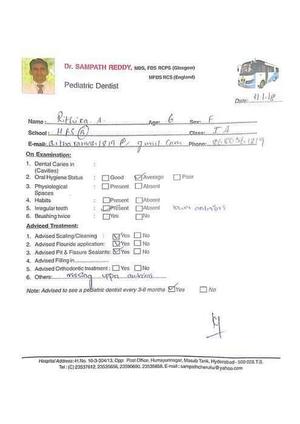 Dr. SAMPATH REDDY, MDS, FDS RCPS (Glasgow)
MFDS RCS (England)
Pediatric Dentist
Date: 11.1.18
Name: A. Age: 6 Sex: F
School: HPS Class: I A
E-mail: Phone:
On Examination:
1. Dental Caries in :
(Cavities)
2. Oral Hygiene Status : Good Average Poor
3. Physiological : Present Absent
Spaces
4. Habits : Present Absent
5. Irregular teeth : Present Absent lower anteriors
6. Brushing twice : Yes No
Adviced Treatment:
1. Advised Scaling/Cleaning : Yes No
2. Advised Flouride application: Yes No
3. Advised Pit & Fissure Sealants: Yes No
4. Advised Filling in
5. Advised Orthodontic treatment : Yes No
6. Others: missing upper
Note: Advised to see a pediatric dentist every 3-6 months Yes No
Hospital Address: H.No. 10-3-304/13, Opp. Post Office, Humayunnagar, Masab Tank, Hyderabad - 500 028. T.S.
Tel: (C) 23537612, 23535656, 23590690, 23535658. E-mail: sampathcherukur@yahoo.com